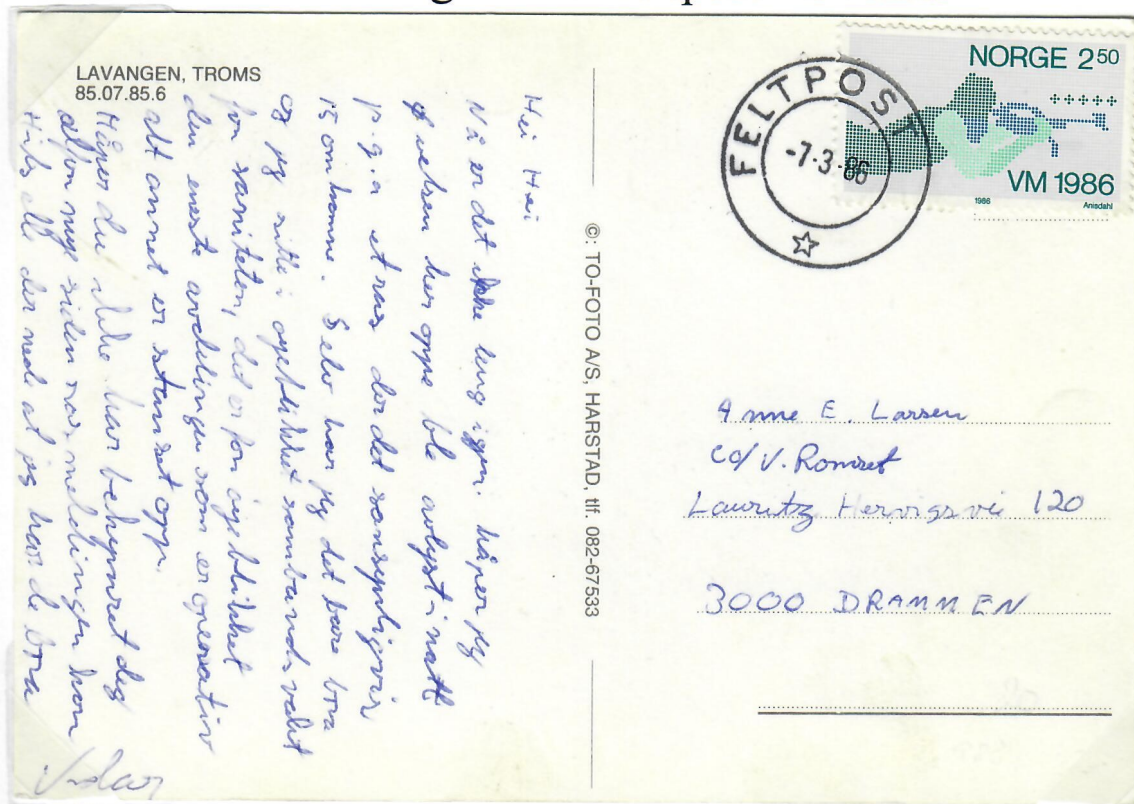 LAVANGEN, TROMS
85.07.85.6
Hei Hei
Nå er det ikke leng igjen. håper jeg
øvelsen her oppe ble avlyst i natt
p.g.a et ras der det sansynligvis
15 omkomme. Selv har jeg det bare bra
og jeg sitter i øyeblikket sambandsvakt
for saniteten, det er for øyeblikket
den eneste avdelingen som er operativ
alt annet er stanset opp.
Håper du ikke har bekymret deg
alfor mye siden ras meldingen kom
Hils alle der nede at jeg har de bra
Vidar
©: TO-FOTO A/S, HARSTAD, tlf. 082-67533
FELTPOST
-7.3.86
NORGE 250
VM 1986
1986
Anisdahl
Anne E. Larsen
co/ V. Romset
Lauritz Hervigsvei 120
3000 DRAMMEN